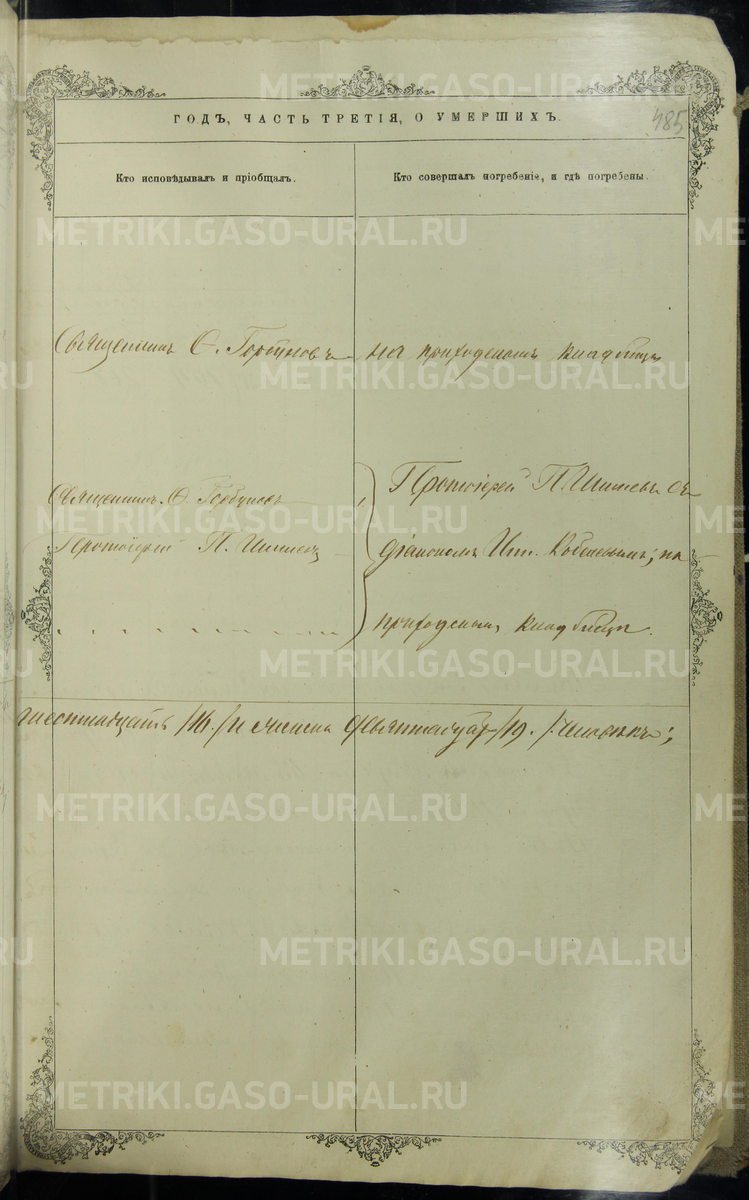 METRIKI.GASO-URAL.RU
485
ГОДЪ, ЧАСТЬ ТРЕТІЯ, О УМЕРШИХЪ.
Кто исповѣдывалъ и пріобщалъ.
Кто совершалъ погребеніе, и гдѣ погребены.
Священникъ Ѳ. Горбуновъ
на приходскомъ кладбищѣ
Священникъ Ѳ. Горбуновъ
Протоіерей П.
Протоіерей П. съ
діакономъ на
приходскомъ кладбищѣ.
шестнадцать /16./ и женска девятнадцать /19./ человѣкъ;